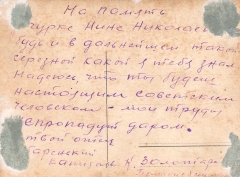 На память
Нине Николаев
будь и в дальнейшем такой
какой я тебя знал
Надеюсь, что ты будешь
настоящим советским
человеком - мои труды
пропадут даром.
твой отец
капитан К. Золотарёв